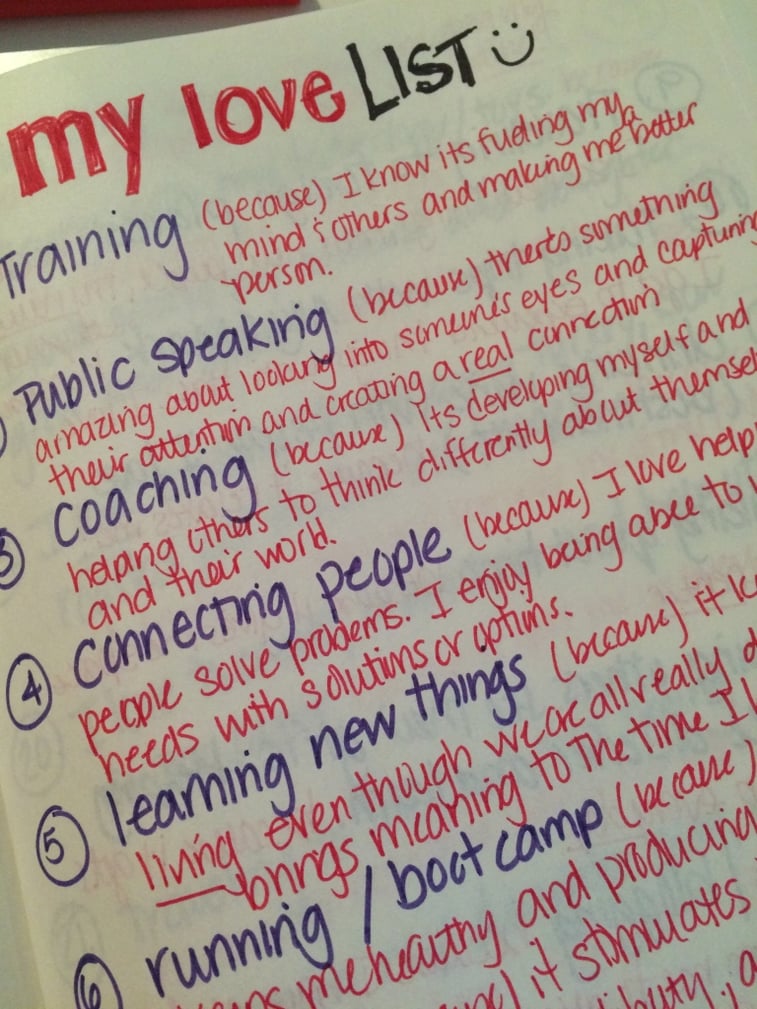 my love LIST
Training (because) I know its fueling my
mind & others and making me a better
person.
Public Speaking (because) theres something
amazing about looking into someones eyes and capturing
their attention and creating a real connection
3 Coaching (because) Its developing myself and
helping others to think differently about
and their world.
4 Connecting people (because) I love
people solve problems. I enjoy being able to
needs with solutions or options.
5 learning new things (because) it
living even though we are all really
brings meaning to the time I
6 running / boot camp (because)
me healthy and producing
it stimulates